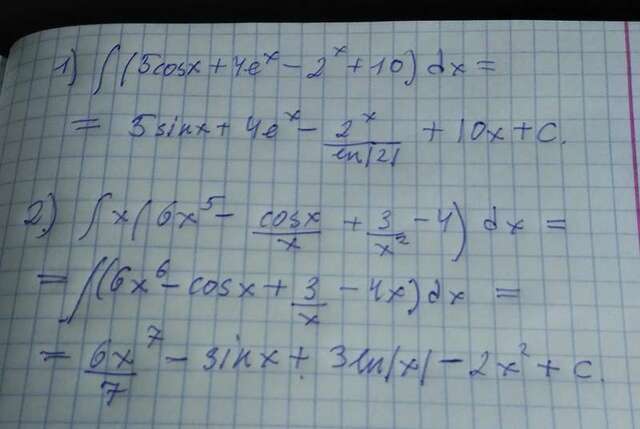 1) ∫(5cosx+4e^x-2^x+10)dx=
= 5sinx+4e^x-2^x/ln|2|+10x+C.
2) ∫x(6x^5-cosx/x+3/x^2-4)dx=
=∫(6x^6-cosx+3/x-4x)dx=
=6x^7/7-sinx+3ln|x|-2x^2+C.